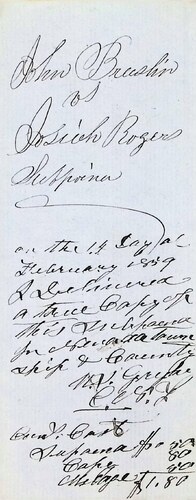 John Breslin
vs
Josiah Rogers
Subpoena
on the 14 Day of
February 1859
I Delivered
a true Copy of
this Subpoena
In
ship & County
Cons. Cost
Supoena $0
Copy 50
Milage
$1.80